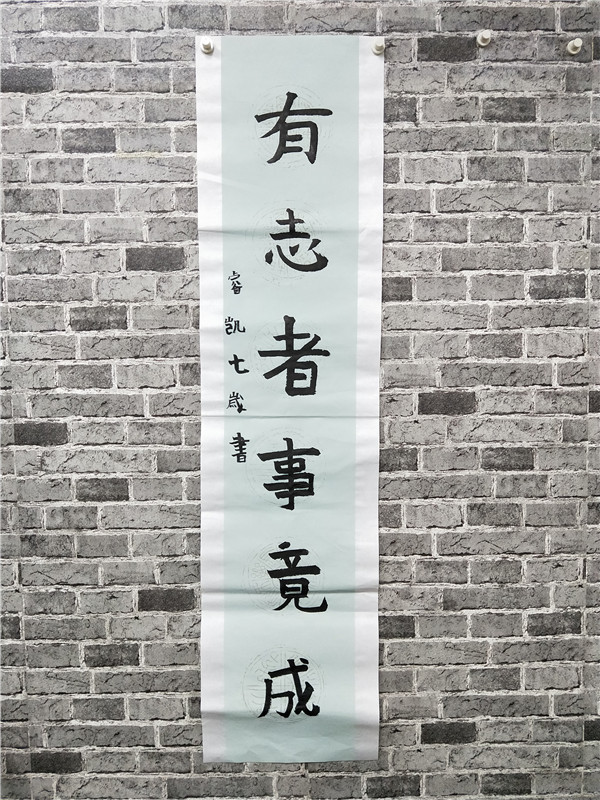 有志者事竟成
睿凯七歲書